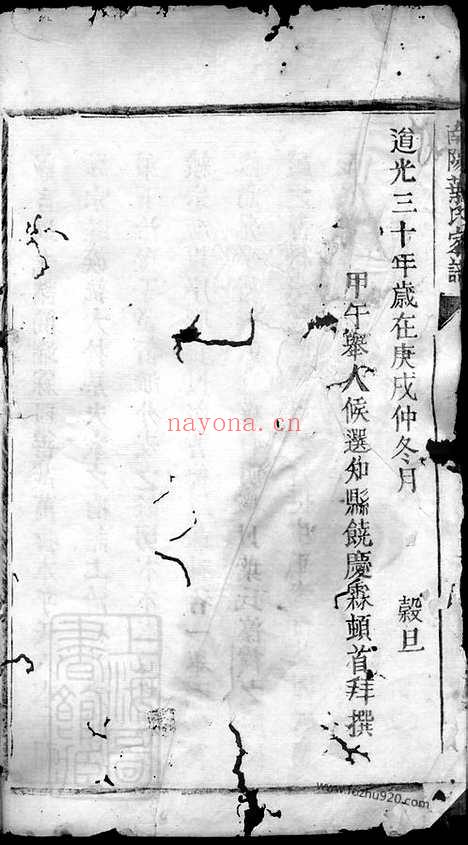 南陽葉氏家譜
道光三十年歲在庚戌仲冬月 穀旦
甲午舉人候選知縣饒慶霖頓首拜撰
nayona.cn
www.fozhu920.com